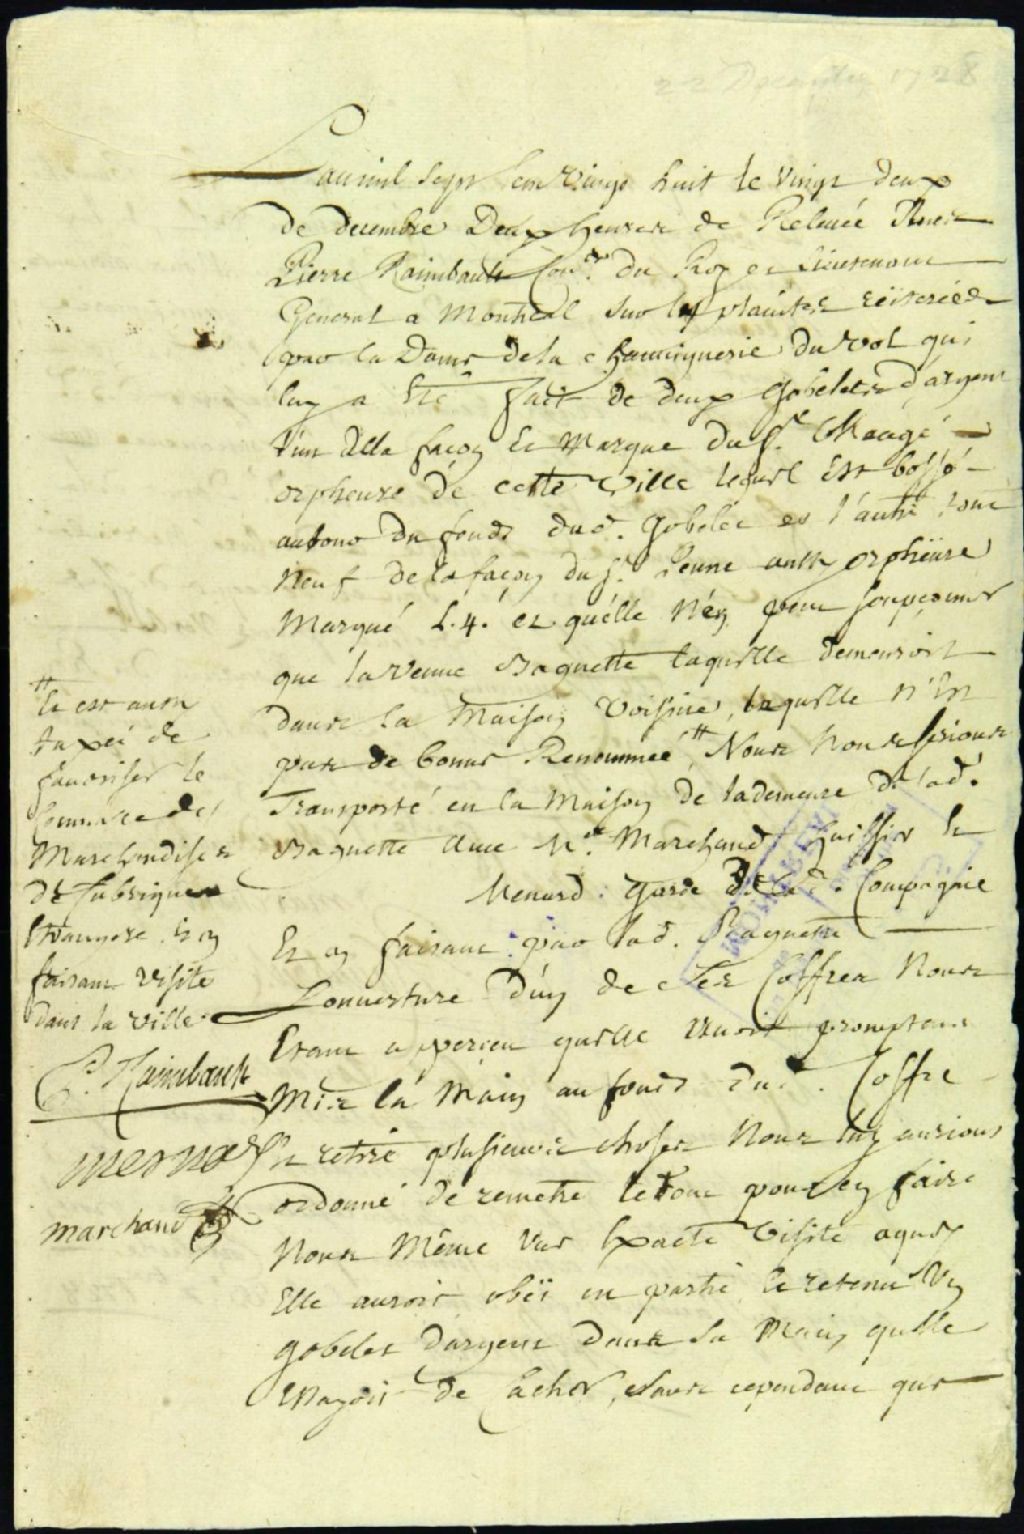 22 Decembre 1728
L'an mil sept cent vingt huit le vingt deux
de decembre Deux heures de Relevée Nous
Pierre Raimbault Con.er du Roy et Lieutenant
General a Montreal sur les plaintes réiterées
par la Dame de la Chauvignerie du vol qui
luy a Eté fait de deux gobelets d'argent
l'un de la façon Et Marque du S.r
orpheuvre de cette Ville lequel Est bossé
autour du fonds dud. gobelet et l'autre tout
neuf de la façon du S.r Jeune aussy orphëuvre
Marqué L.4. et qu'elle n'en peut soupçonner
que la veuve Baguette laquelle demeuroit
dans la Maison Voisine, laquelle n'Est
pas de bonne Renommée, # Nous nous serions
Transporté en la Maison de la demeure de lad.
Baguette avec M.e Marchand huissier Et
Menard garde de lad. Compagnie
Et en faisant par lad. Baguette
L'ouverture d'un de ses Coffres Nous
Etant apperçeu quelle avoit promptement
Mis la Main au fonds dud. Coffre
Et retiré plusieurs choses Nous luy aurions
ordonné de remetre le tout pour en faire
Nous Même une Exacte Visite aquoy
Elle auroit obëi en partie et retenu Un
gobelet d'argent dans sa Main, quelle
Essayoit de Cacher, Nous cependant que
# Et est aussi
taxée de
favoriser le
Commerce des
Marchandises
de fabrique
Etrangere. Et en
faisant visite
dans la ville
P. Raimbault
menard
marchand